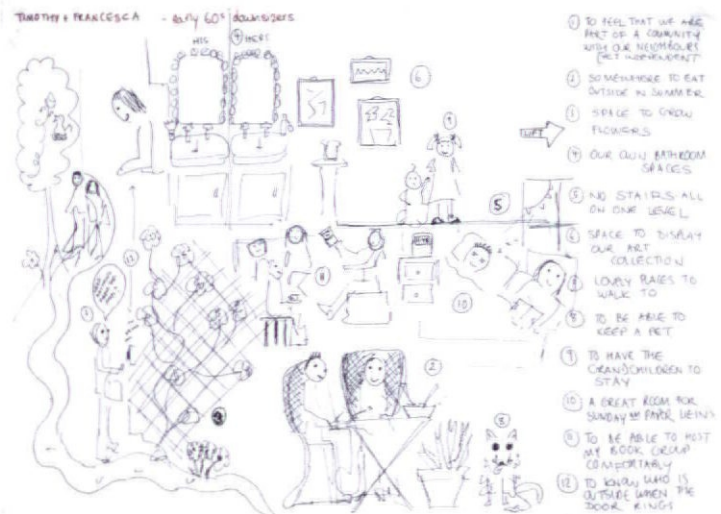 TIMOTHY & FRANCESCA - early 60s downsizers
HIS
4
HERS
6
9
LIFT
5
11
10
2
8
① TO FEEL THAT WE ARE
PART OF A COMMUNITY
WITH OUR NEIGHBOURS
YET INDEPENDENT
② SOMEWHERE TO EAT
OUTSIDE IN SUMMER
③ SPACE TO GROW
FLOWERS
④ OUR OWN BATHROOM
SPACES
⑤ NO STAIRS ALL
ON ONE LEVEL
⑥ SPACE TO DISPLAY
OUR ART
COLLECTION
LOVELY PLACES TO
WALK TO
⑧ TO BE ABLE TO
KEEP A PET
⑨ TO HAVE THE
GRANDCHILDREN TO
STAY
⑩ A GREAT ROOM FOR
SUNDAY AM PAPER
⑪ TO BE ABLE TO HOST
MY BOOK GROUP
COMFORTABLY
⑫ TO KNOW WHO IS
OUTSIDE WHEN THE
DOOR RINGS